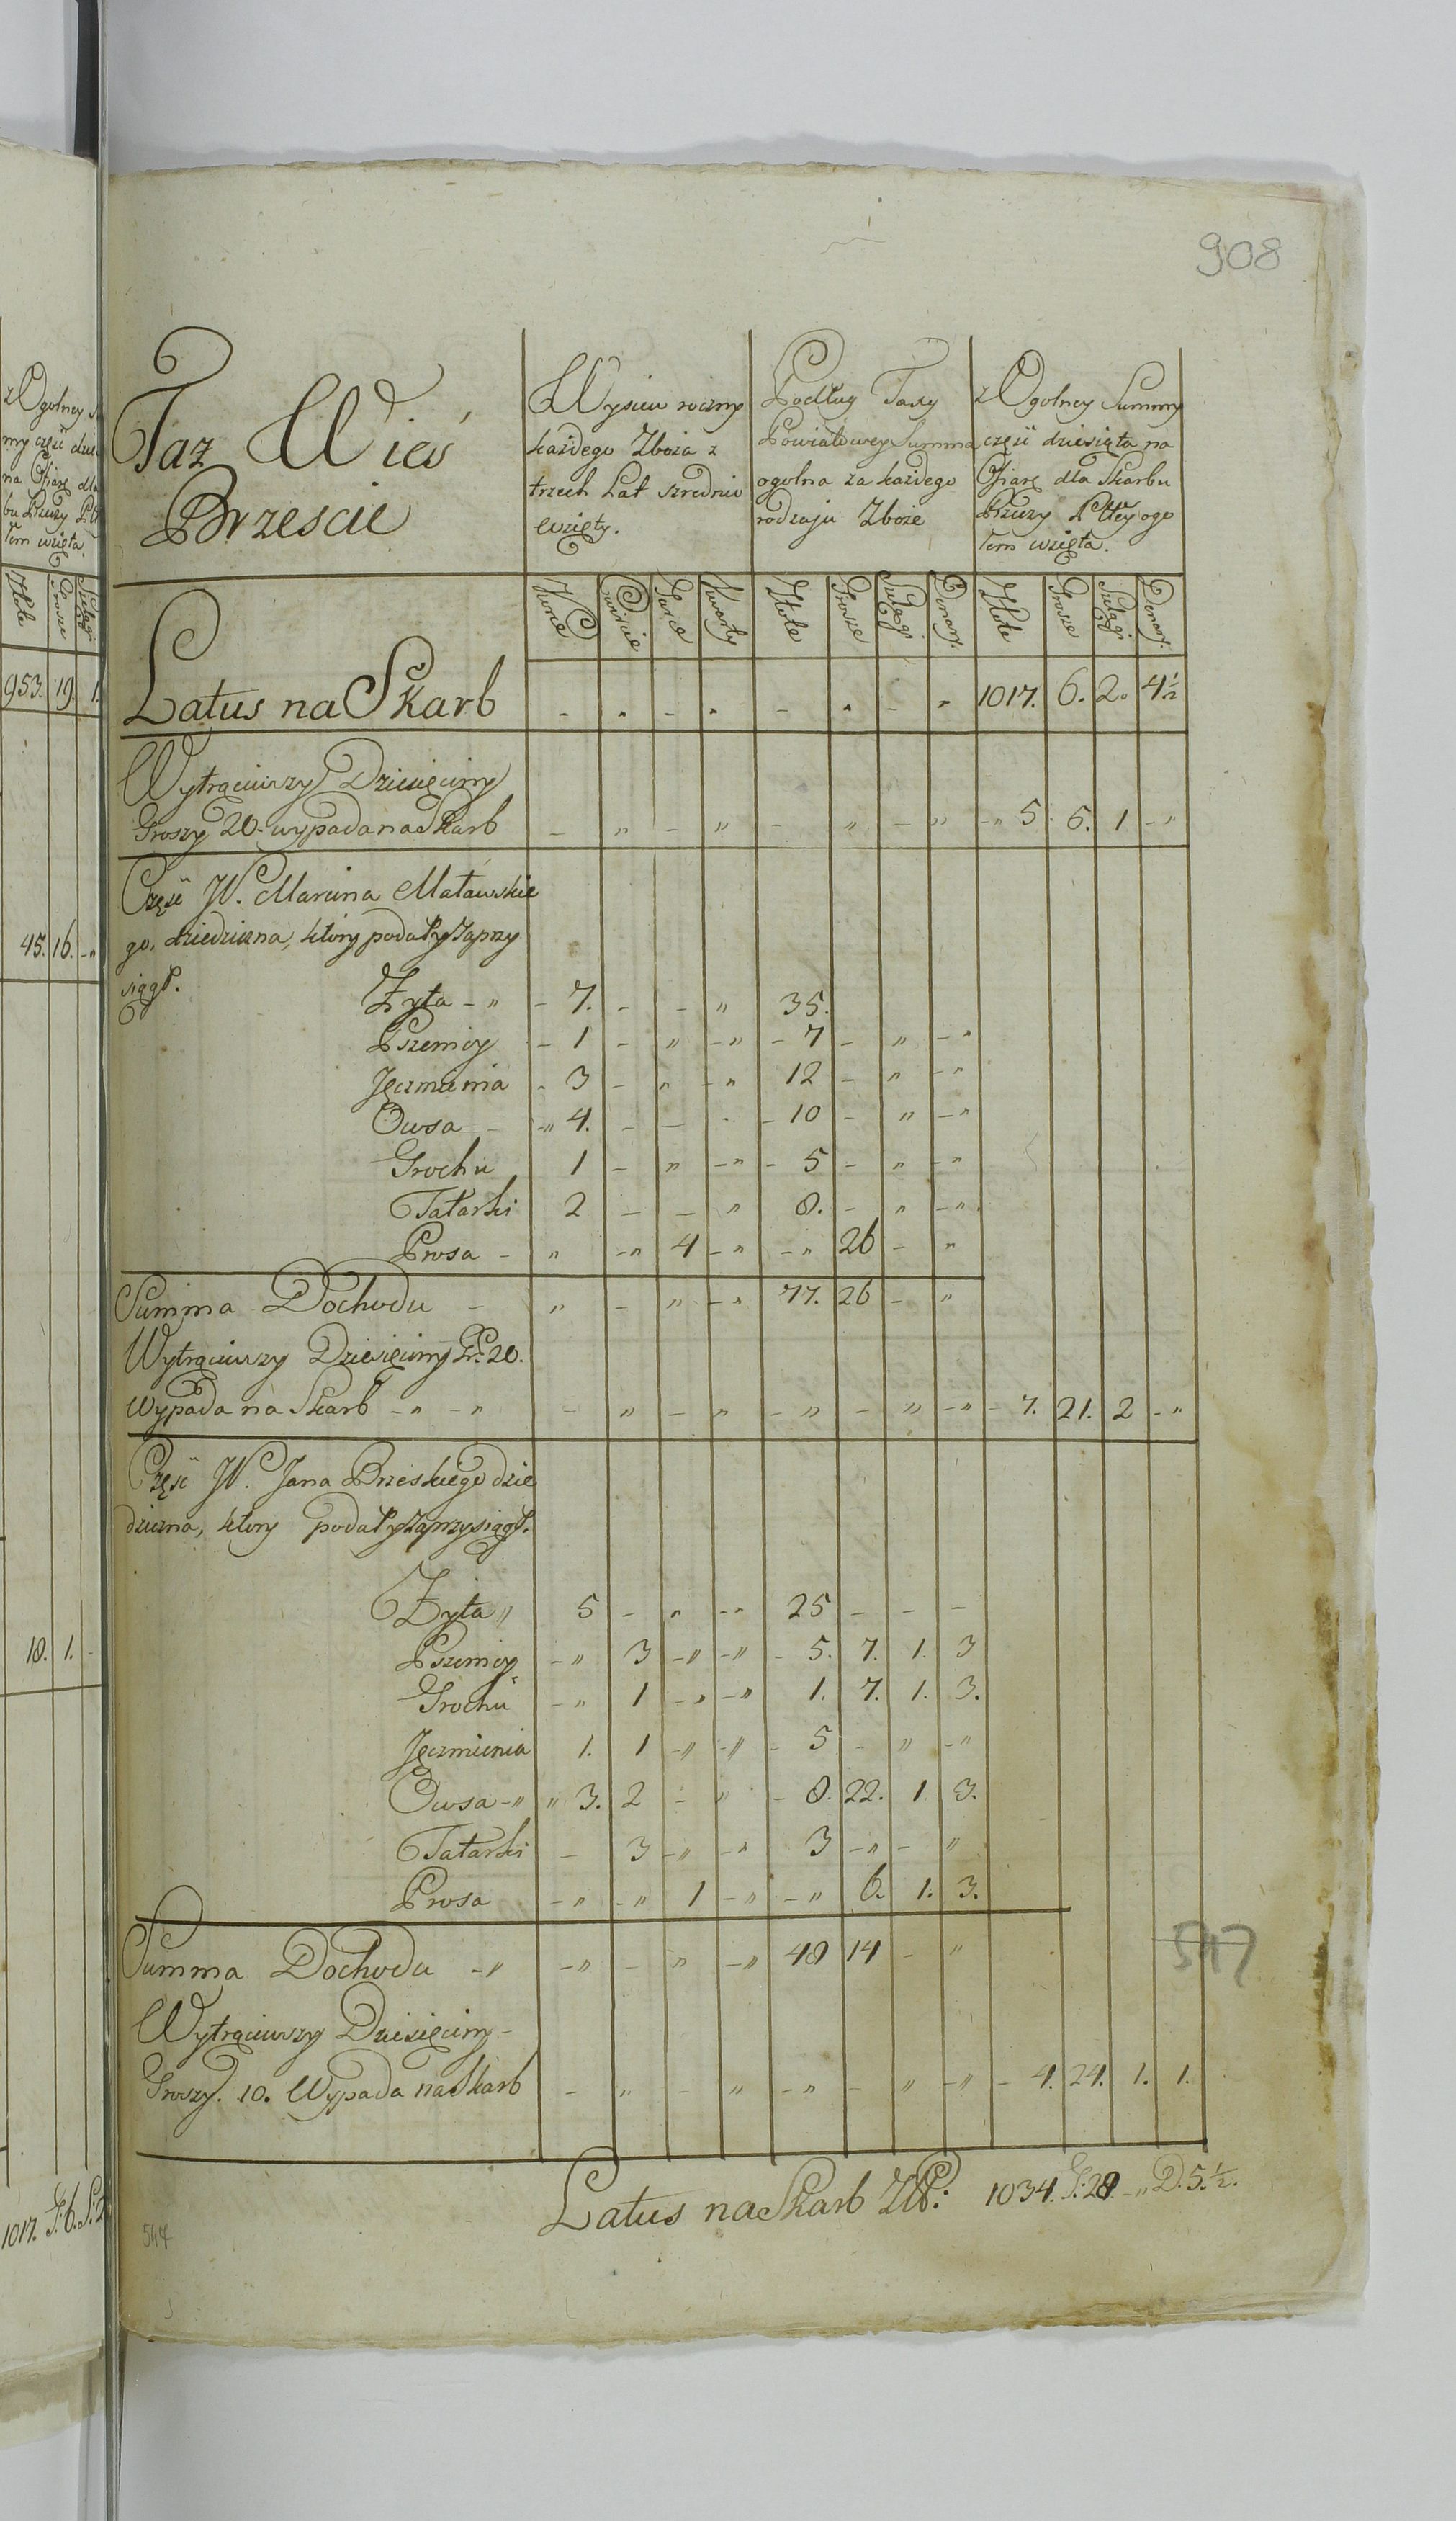 z Ogolney
my częsi
na Ofiarę dla
tem wzięta.
Złote Grosze Szelągi
953. 19. 1.
45. 16. -"
18. 1. -
1017. G: 6. S: 2
908
Taz Wieś
Brzescie
Wysiew roczny
każdego Zboża z
trzech Lat szrednio
wzięty.
Podług Taxy
Powiatowey Summa
ogolna za każdego
rodzaju Zboże
z Ogolney Summy
częsi dziesiąta na
Ofiarę dla Skarbu
Rzeczy Pltey ogo
łem wzięta.
Korce Cwiercie Garce Kwarty Złote Grosze Szelągi Denary. Złote Grosze Szelągi Denary.
Latus na Skarb - " - " - " - " 1017. 6. 2. 4 1/2
Wytrąciwszy Dziesięciny
Groszy 20. wypada na Skarb - " - " - " - " -" 5. 6. 1 -"
Częsć W. Marcina Matawskie
go, dziedziczna, ktory podał y zaprzy
siągł.
Zyta -" - 7. - - " 35.
Pszenicy - 1 - " -" - 7 - " -"
Jęczmienia - 3 - " -" 12 - " -"
Owsa - -" 4. - - - - 10 - " -"
Grochu 1 - " -" - 5 - " -"
Tatarki 2 - - " 8. - " -"
Prosa - " -" 4 -" -" 26 - "
Summa Dochodu - " - " -" 77. 26 - "
Wytrąciwszy Dziesięciny Gr: 20.
wypada na Skarb -" -" - " - " -" - " -" - 7. 21. 2 -"
Częsć W. Jana Brzeskiego dzie
dziczna, ktory podał y zaprzysiągł.
Zyta " 5 - " -" 25 - - -
Pszenicy -" 3 -" -" - 5. 7. 1. 3
Grochu -" 1 -" -" 1. 7. 1. 3.
Jęczmienia 1. 1 -" -" - 5 - " -"
Owsa -" " 3. 2 - " - 8. 22. 1 3.
Tatarki - 3 -" -" 3 -" - "
Prosa -" -" 1 -" -" 6. 1. 3.
Summa Dochodu -" -" - " -" 48 14 - "
547
Wytrąciwszy Dziesięciny -
Groszy. 10. Wypada na Skarb - " - " -" - " -" - 4. 24. 1. 1.
Latus na Skarb Złł: 1034. G: 28. -" D. 5. 1/2.
544